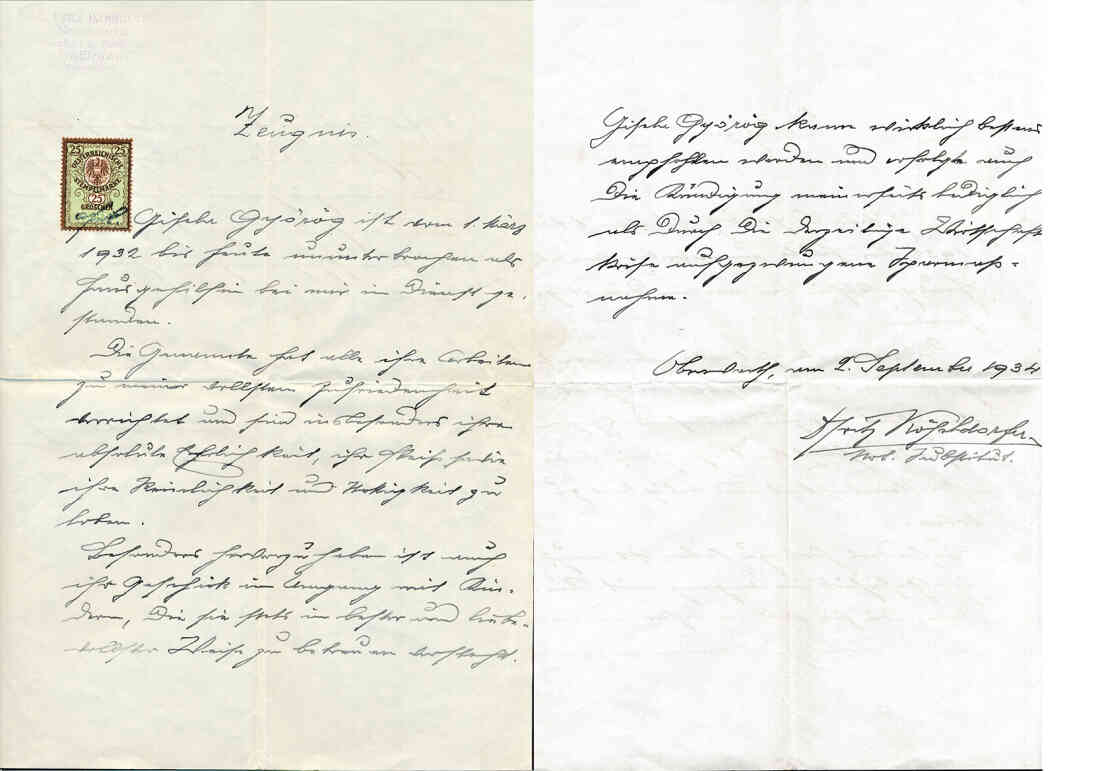 Zeugnis.
25 25
ÖSTERREICHISCHE
STEMPELMARKE
25
GROSCHEN
Gisela György ist vom 1. März
1932 bis heute ununterbrochen als
Hausgehilfin bei mir in Dienst ge-
standen.
Die Genannte hat alle ihre Arbeiten
zu meiner vollsten Zufriedenheit
verrichtet und sind insbesonders ihre
absolute Ehrlichkeit, ihr Fleiß sowie
ihre Reinlichkeit und zu
loben.
Besonders hervorzuheben ist auch
ihr Geschick im Umgang mit Kin-
dern, die sie stets in bester und liebe-
vollster Weise zu betreuen versteht.
Gisela György kann wirklich bestens
empfohlen werden und erfolgte auch
die Kündigung meinerseits lediglich
als durch die derzeitige Wirtschafts
krise aufgezwungene Sparmaß-
nahme.
Oberwarth, am 2. September 1934
Not. Substitut.